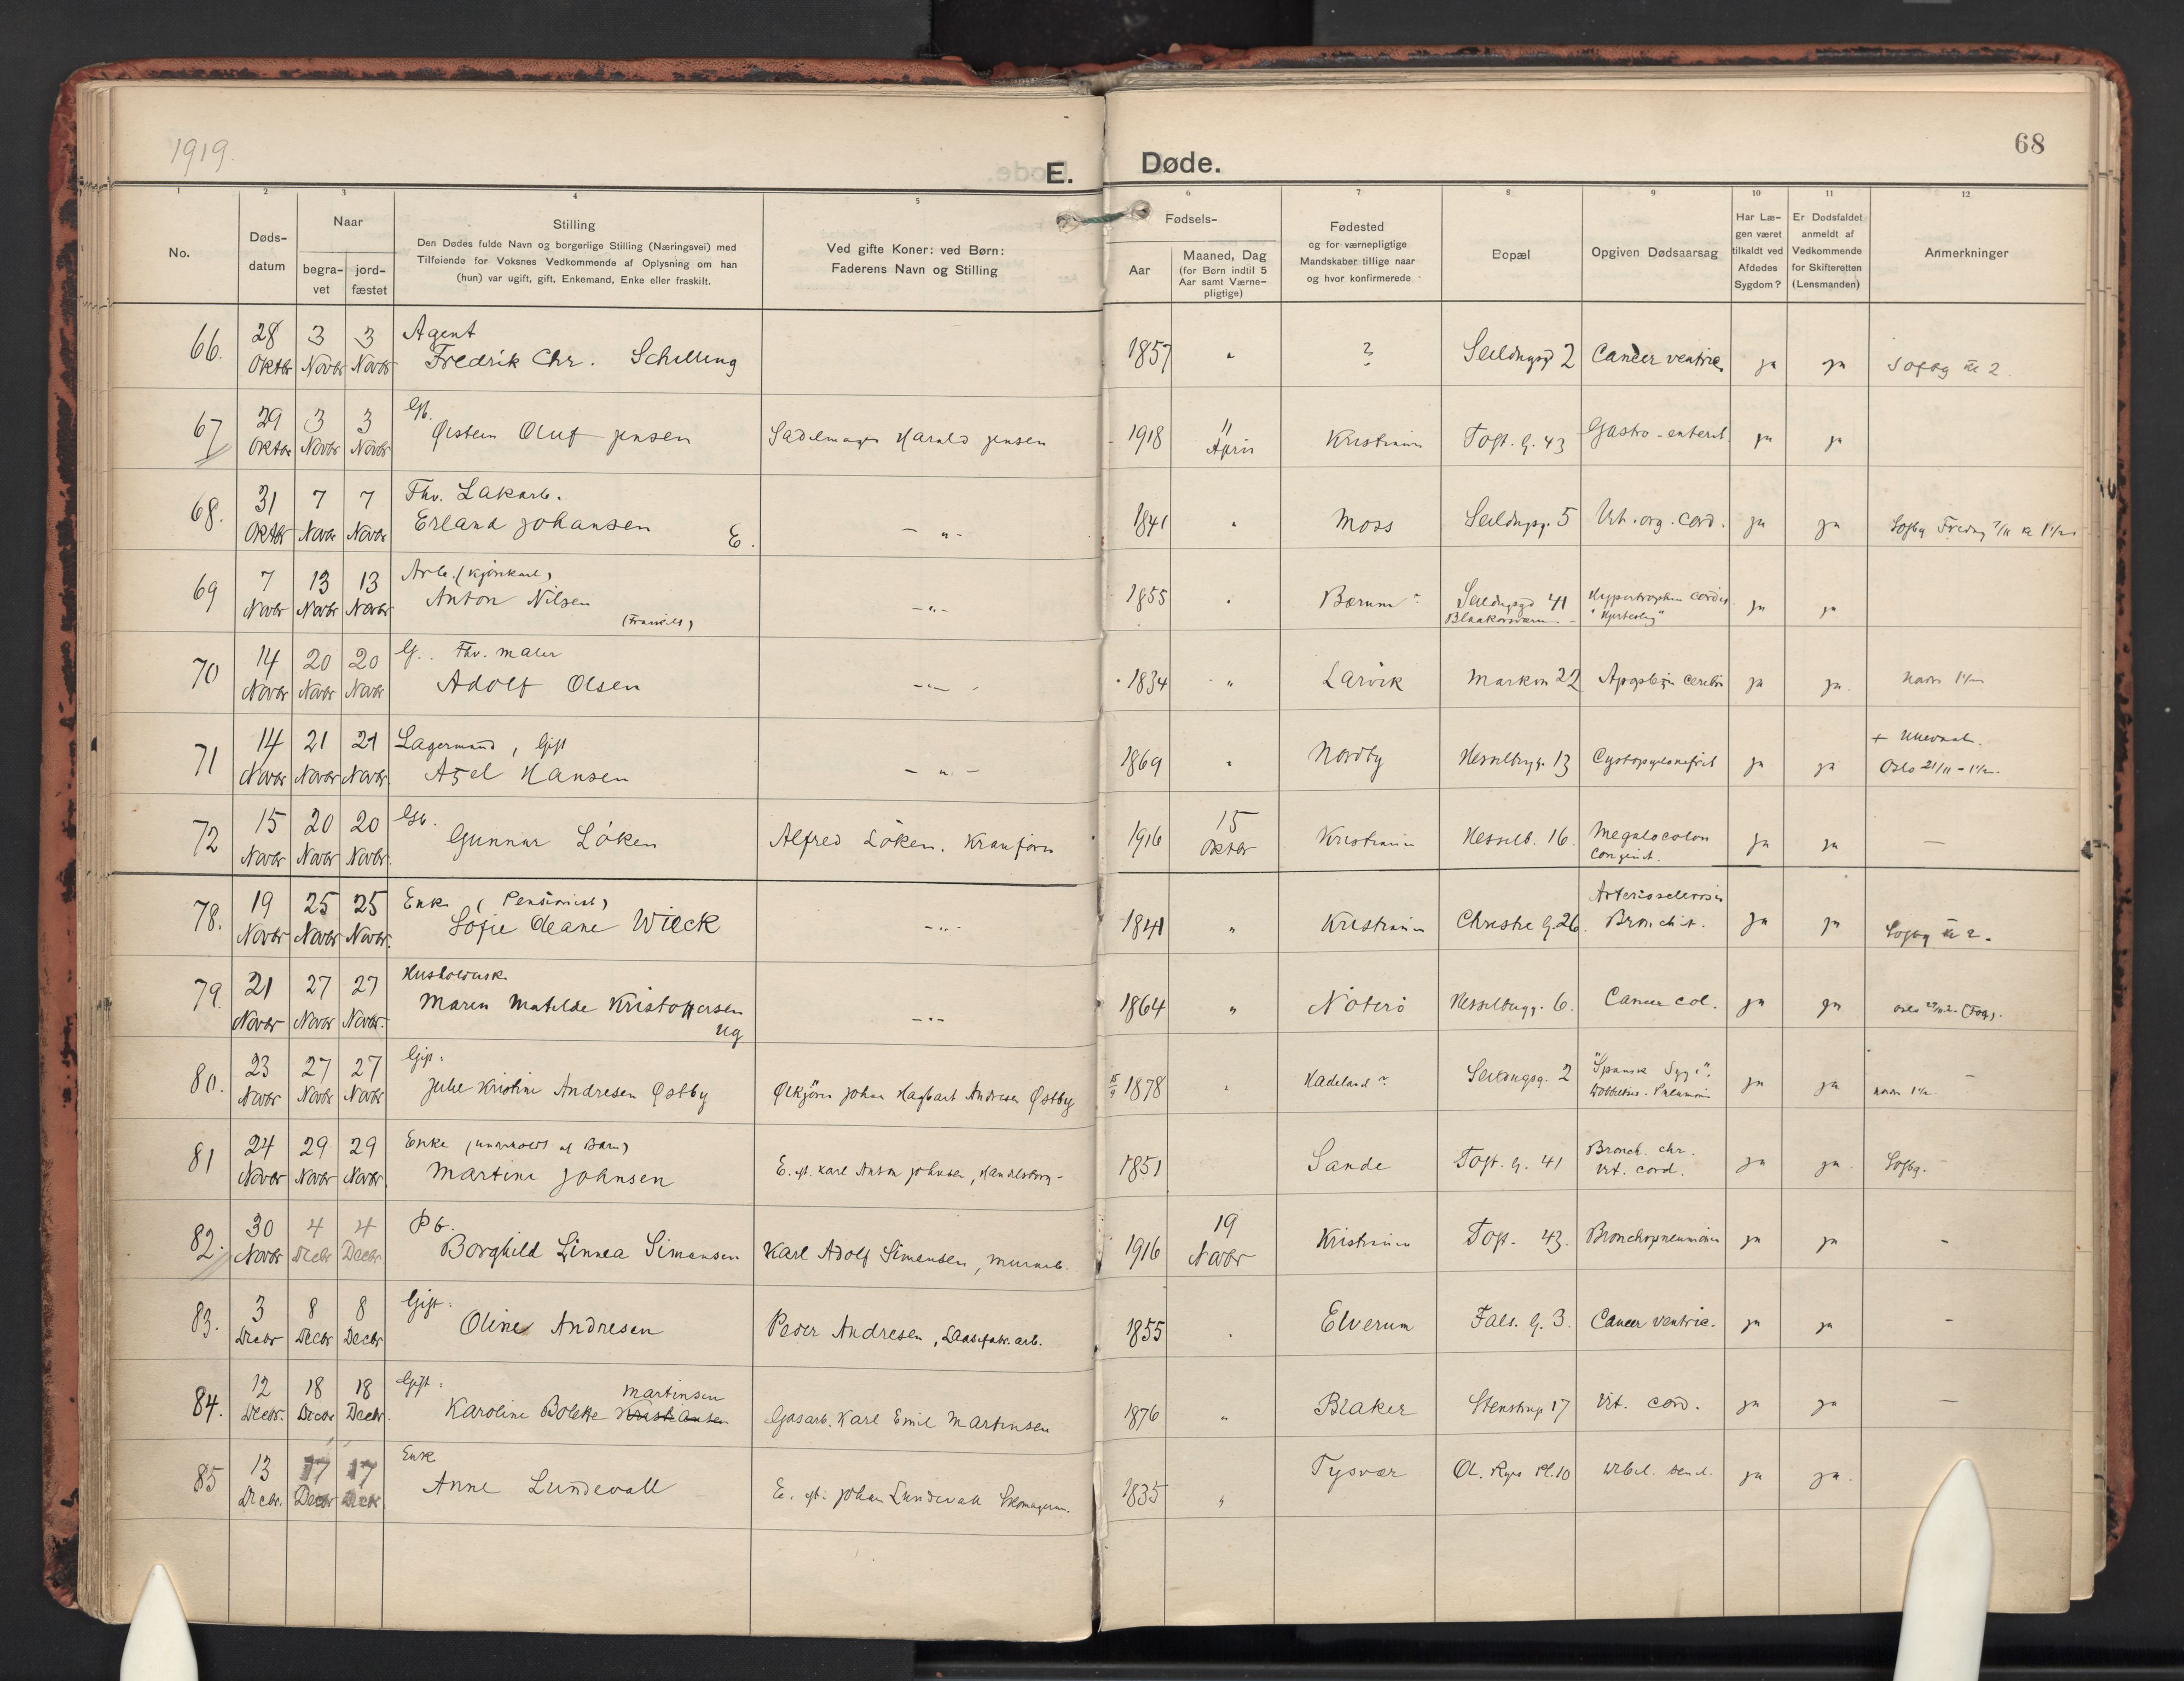 1919.
E.
Døde.
68
1
2
3
4
5
6
7
8
9
10
11
12
No.
Døds-
datum
Naar
begra-
vet
jord-
fæstet
Stilling
Den Dødes fulde Navn og borgerlige Stilling (Næringsvei) med
Tilføiende for Voksnes Vedkommende af Oplysning om han
(hun) var ugift, gift, Enkemand, Enke eller fraskilt.
Ved gifte Koner: ved Børn:
Faderens Navn og Stilling
Fødsels-
Aar
Maaned, Dag
(for Børn indtil 5
Aar samt Værne-
pligtige)
Fødested
og for værnepligtige
Mandskaber tillige naar
og hvor konfirmerede
Bopæl
Opgiven Dødsaarsag
Har Læ-
gen været
tilkaldt ved
Afdødes
Sygdom?
Er Dødsfaldet
anmeldt af
Vedkommende
for Skifteretten
(Lensmanden)
Anmerkninger
66. 28 3 3 Agent
Oktbr Novbr Novbr Fredrik Chr. Schilling 1857 " ? 2 Cancer ventric. ja ja Sofbg kl 2.
67 29 3 3 Gb.
Oktbr Novbr Novbr Øistein Oluf Jensen Sadelmager Harald Jensen 1918 11 April Kristiania Toft. g. 43 Gastro-enterit. ja ja
68. 31 7 7 Fhv. Lakarb.
Oktbr Novbr Novbr Erland Johansen E. - " - 1841 " Moss 5 Vit. org. cord. ja ja Sofbg Fredag 7/11
69 7 13 13 Arb. (Kjørekarl)
Novbr Novbr Novbr Anton Nilsen - " - 1855 " Bærum 41 Hypertrophia cordis ja ja
(Fraskilt)
70 14 20 20 G. Fhv. Maler
Novbr Novbr Novbr Adolf Olsen - " - 1834 " Larvik Markvn 22 Apoplexia cerebri ja ja
71 14 21 21 Lagermand, Gift
Novbr Novbr Novbr Axel Hansen - " - 1869 " Nordby Hesselbgg. 13 Cystopyelonefrit ja ja
Oslo 21/11
72 15 20 20 Gb.
Novbr Novbr Novbr Gunnar Löken Alfred Löken. 1916 15 Oktbr Kristiania Hesselb. 16. Megalocolon congenit. ja ja —
78. 19 25 25 Enke (Pensionist)
Novbr Novbr Novbr. Sofie Oleane Wilck - " - 1841 " Kristiania Christie g. 26. Arteriosclerosis Bronchit. ja ja Sofbg kl 2.
79. 21 27 27 Husholdersk.
Novbr Novbr Novbr. Maren Matilde Kristoffersen - " - 1864 " Nöterö Hesselbergg. 6. Cancer col. ja ja
ug
80. 23 27 27 Gift:
Novbr Novbr Novbr Julie Kristine Andresen Østby Ölkjörer Johan Hagbart Andresen Østby 1878 " Hadeland 2 "Spansk Syge". Pneumoni ja ja
81 24 29 29 Enke (underholdt af Barn)
Novbr Novbr Novbr Martine Johnsen E. eft. Karl Anton Johnsen, 1851 Sande Toft. g. 41 Bronch. chr. Vit. cord. ja ja Sofbg. -
82. 30 4 4 Pb.
Novbr Decbr Decbr Borghild Linnea Simensen Karl Adolf Simensen, murarb. 1916 19 Novbr Kristiania Toft. 43. Bronchopneumoni ja ja -
83. 3 8 8 Gift:
Decbr Decbr Decbr Oline Andresen Peder Andresen, 1855 " Elverum Fals. g. 3. Cancer ventric. ja ja -
84. 12 18 18 Gift: Martinsen
Decbr. Decbr Decbr. Karoline Bolette Kristiansen Gasarb. Karl Emil Martinsen 1876 " Blaker Stenstrup 17 Vit. cord. ja ja —
85 13 17 17 Enke
Decbr. Decbr Anne Lundevall E. eft. Johan Lundevall 1835 " Tysvær Ol. Ryes Pl. 10 ja ja.